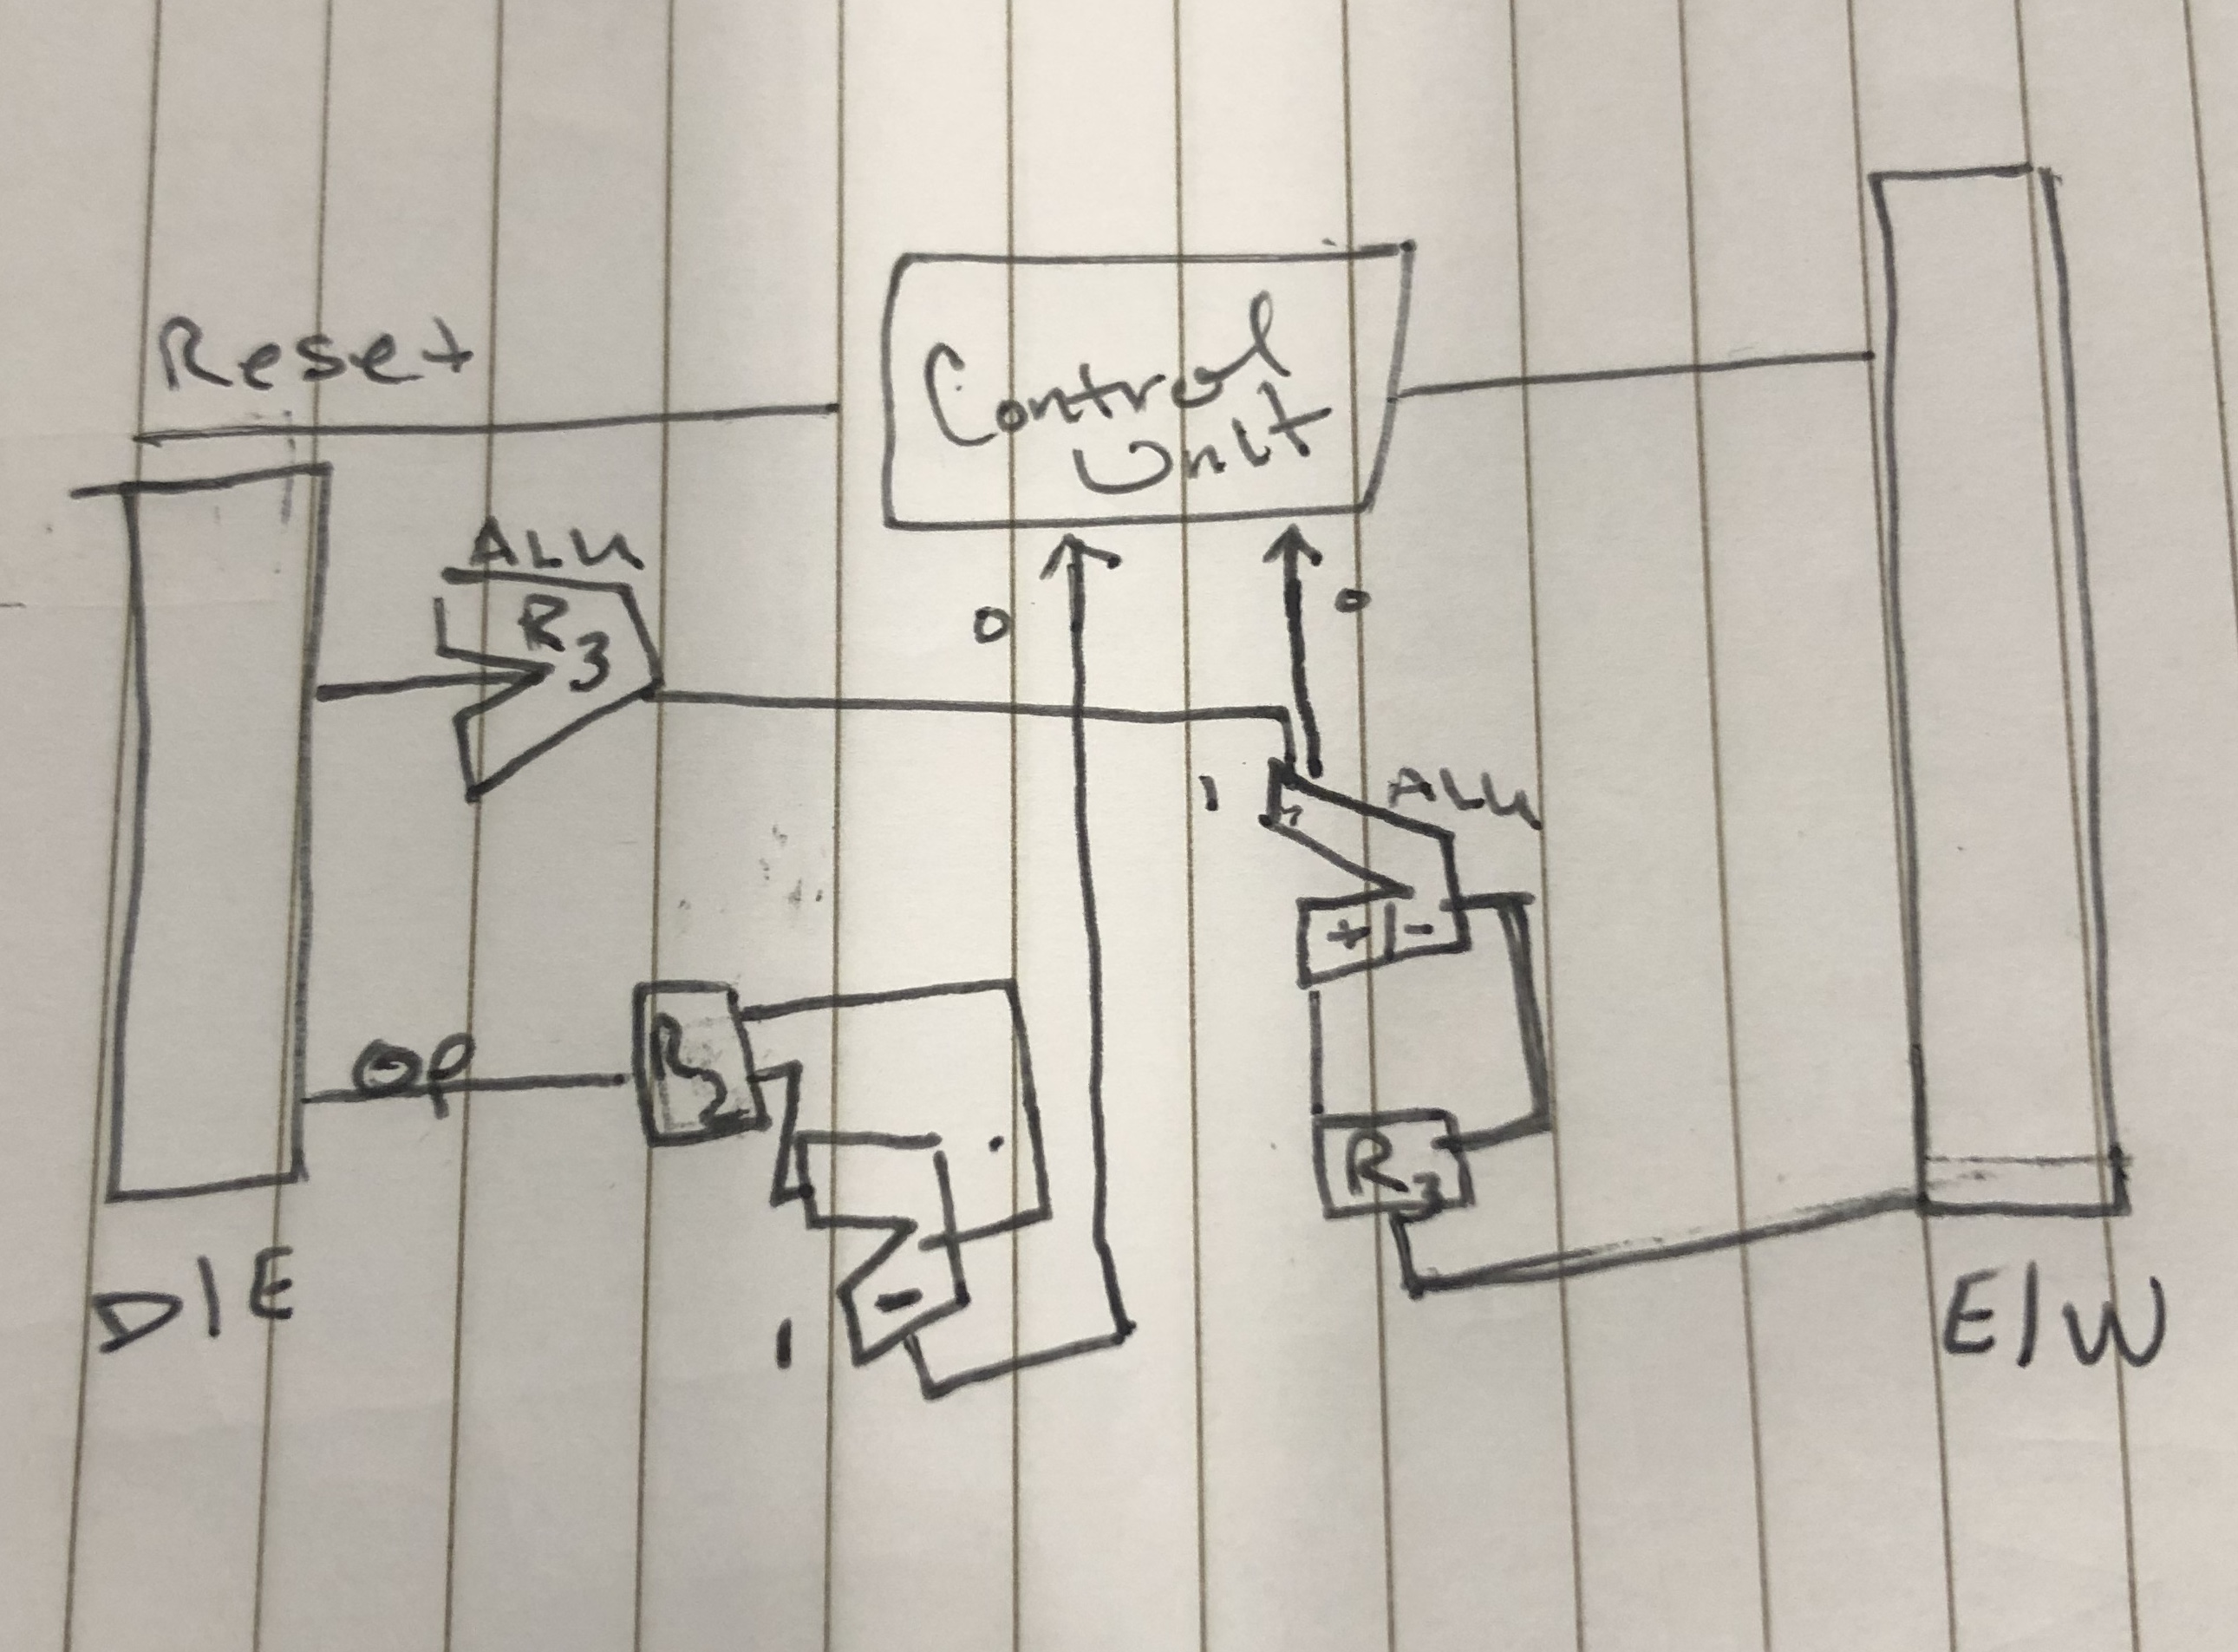 Reset
Control
Unit
ALU
R3
0
0
1
ALU
+ -
OP
R2
R3
-
1
D/E
E/W